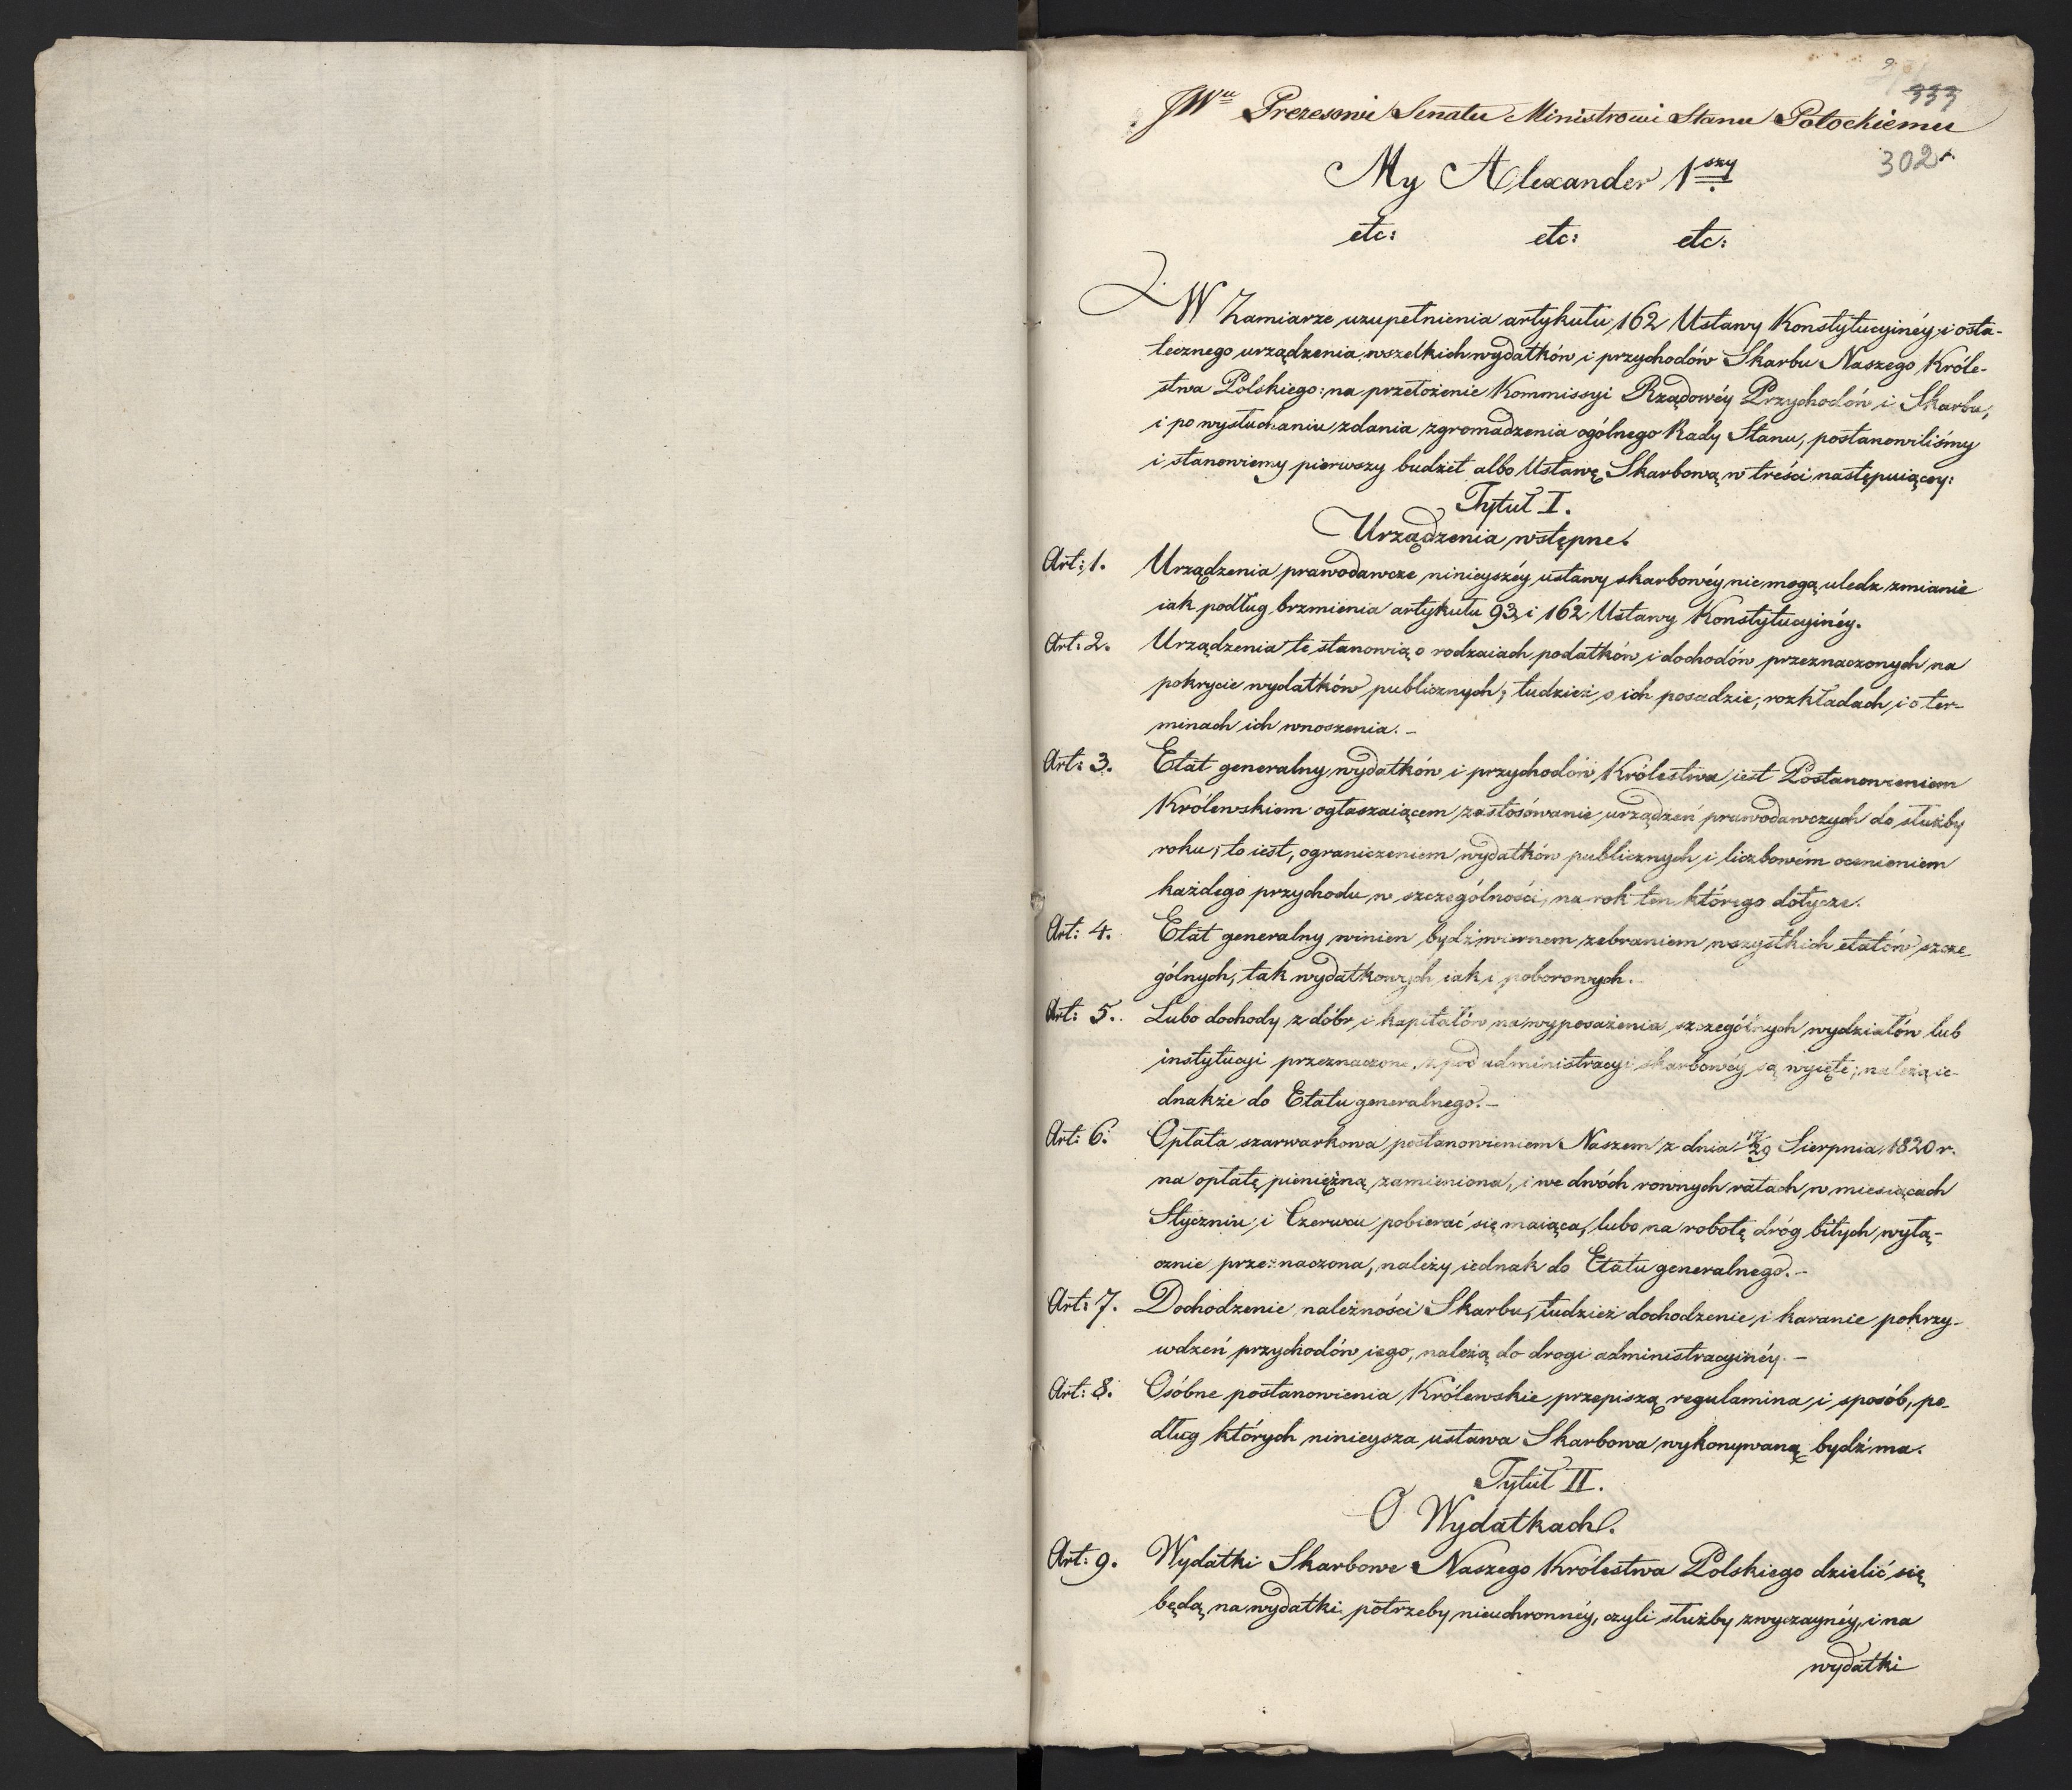 333
JWu Prezesowi Senatu Ministrowi Stanu Potockiemu
302
My Alexander 1szy
etc: etc: etc:
W Zamiarze uzupełnienia artykułu 162 Ustawy Konstytucyinéy i osta-
tecznego urządzenia wszelkich wydatków i przychodów Skarbu Naszego Króle-
stwa Polskiego: na przełożenie Kommissyi Rządowéy Przychodów i Skarbu,
i po wysłuchaniu zdania zgromadzenia ogólnego Rady Stanu, postanowiliśmy
i stanowiemy pierwszy budżet albo Ustawę Skarbową w treści następuiącey:
Tytuł I.
Urządzenia wstępne.
Art: 1. Urządzenia prawodawcze ninieyszéy ustawy skarbowéy nie mogą uledz zmianie
iak podług brzmienia artykułu 93 i 162 Ustawy Konstytucyinéy.
Art: 2. Urządzenia te stanowią o rodzaiach podatków i dochodów przeznaczonych na
pokrycie wydatków publicznych; tudzież o ich posadzie, rozkładach, i o ter-
minach ich wnoszenia. -
Art: 3. Etat generalny wydatków i przychodów Królestwa, iest Postanowieniem
Królewskiem ogłaszaiącem zastosówanie urządzeń prawodawczych do służby
roku; to iest, ograniczeniem wydatków publicznych i liczbowém ocenieniem
każdego przychodu w szczególności, na rok ten którego dotycze.
Art: 4. Etat generalny winien bydź wiernem zebraniem wszystkich etatów szcze
gólnych, tak wydatkowych iak i poborowych.
Art: 5. Lubo dochody z dóbr i kapitałów na wyposażenia szczególnych wydziałów lub
instytucyi przeznaczone, z pod administracyi skarbowéy są wyięte; należą ie-
dnakże do Etatu generalnego. -
Art: 6. Opłata szarwarkowa postanowieniem Naszem z dnia 17/29 Sierpnia 1820 r.
na opłatę pieniężną zamieniona, i we dwóch rownych ratach w miesiącach
Styczniu i Czerwcu pobierać się maiąca, lubo na robotę dróg bitych wyłą-
cznie przeznaczona, należy iednak do Etatu generalnego. -
Art: 7. Dochodzenie należności Skarbu, tudzież dochodzenie i karanie pokrzy-
wdzeń przychodów iego, należą do drogi administracyinéy. -
Art: 8. Osóbne postanowienia Królewskie przepiszą regulamina, i sposób, po-
dług których ninieysza ustawa Skarbowa wykonywaną bydź ma.
Tytuł II.
O Wydatkach.
Art: 9. Wydatki Skarbowe Naszego Królestwa Polskiego dzielić się
będą na wydatki potrzeby nieuchronnéy, czyli służby zwyczaynéy, i na
wydatki